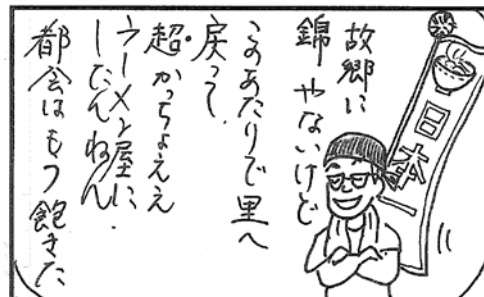 日本一
故郷に
錦やないけど
このあたりで里へ
戻って、
超かっちょええ
ラーメン屋に
したんねん
都会はもう飽きた